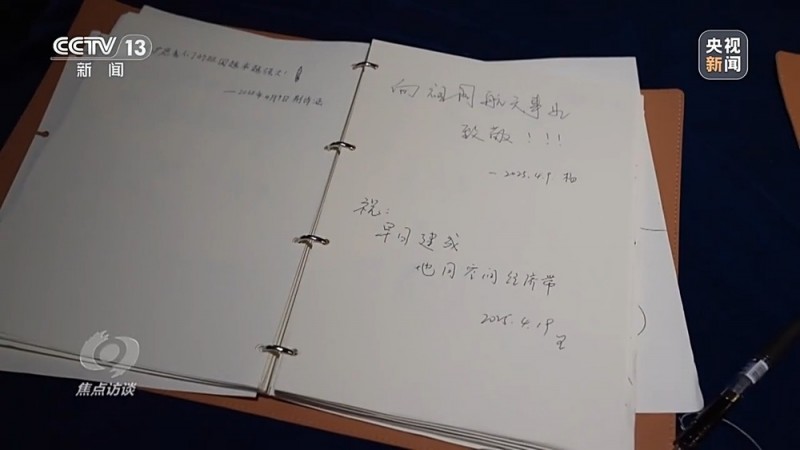 CCTV 13
新闻
央视
新闻
祖国越来越强大！
向祖国航天事业
致敬！！！
—2025.4.9
祝：
早日建成
地月空间经济带
2025.4.19
焦点访谈